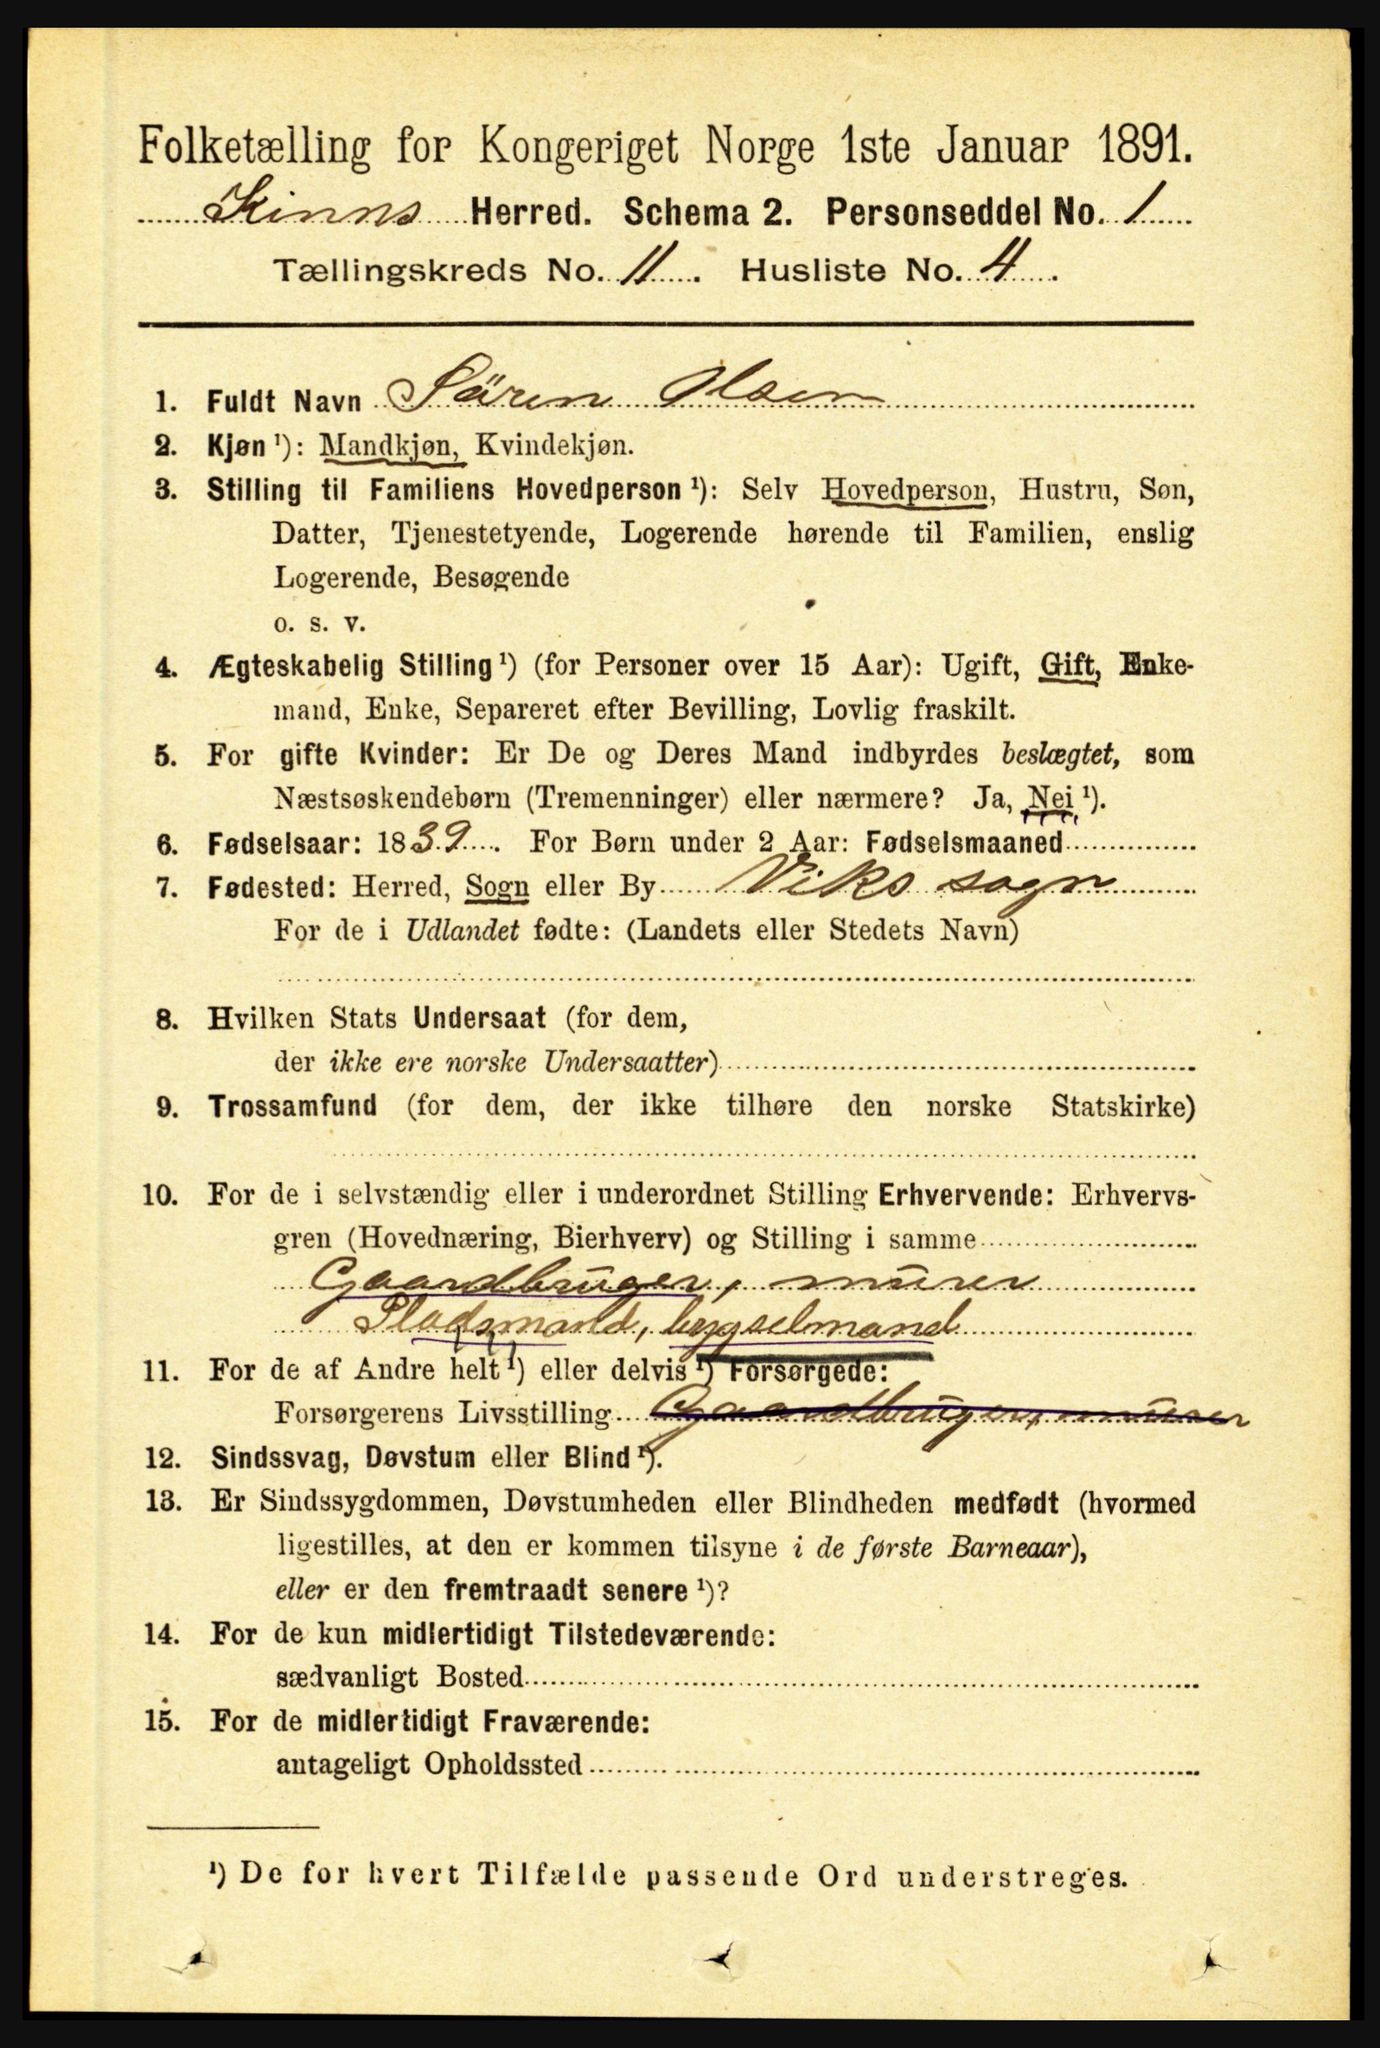 Folketælling for Kongeriget Norge 1ste Januar 1891.
Kinns Herred. Schema 2. Personseddel No. 1
Tællingskreds No. 11. Husliste No. 4.
1. Fuldt Navn Sören Olsen
2. Kjøn ¹): Mandkjøn, Kvindekjøn.
3. Stilling til Familiens Hovedperson ¹): Selv Hovedperson, Hustru, Søn,
Datter, Tjenestetyende, Logerende hørende til Familien, enslig
Logerende, Besøgende
o. s. v.
4. Ægteskabelig Stilling ¹) (for Personer over 15 Aar): Ugift, Gift, Enke-
mand, Enke, Separeret efter Bevilling, Lovlig fraskilt.
5. For gifte Kvinder: Er De og Deres Mand indbyrdes beslægtet, som
Næstsøskendebørn (Tremenninger) eller nærmere? Ja, Nei ¹).
6. Fødselsaar: 1839. For Børn under 2 Aar: Fødselsmaaned
7. Fødested: Herred, Sogn eller By Viks sogn
For de i Udlandet fødte: (Landets eller Stedets Navn)
8. Hvilken Stats Undersaat (for dem,
der ikke ere norske Undersaatter)
9. Trossamfund (for dem, der ikke tilhøre den norske Statskirke)
10. For de i selvstændig eller i underordnet Stilling Erhvervende: Erhvervs-
gren (Hovednæring, Bierhverv) og Stilling i samme
Gaardbruger, murer
Pladsmand, bygselmand
11. For de af Andre helt ¹) eller delvis ¹) Forsørgede:
Forsørgerens Livsstilling Gaardbruger, murer
12. Sindssvag, Døvstum eller Blind ¹).
13. Er Sindssygdommen, Døvstumheden eller Blindheden medfødt (hvormed
ligestilles, at den er kommen tilsyne i de første Barneaar),
eller er den fremtraadt senere ¹)?
14. For de kun midlertidigt Tilstedeværende:
sædvanligt Bosted
15. For de midlertidigt Fraværende:
antageligt Opholdssted
¹) De for hvert Tilfælde passende Ord understreges.